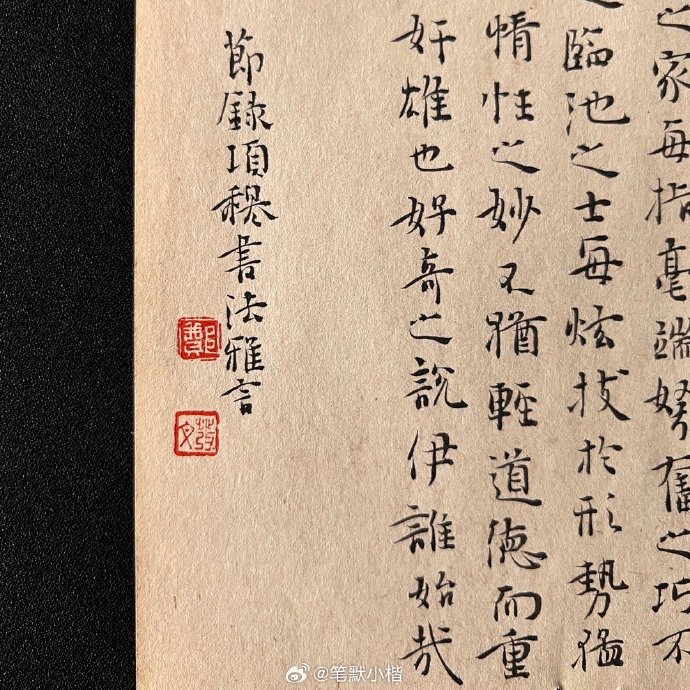 之家每指毫端努奮之巧不
之臨池之士每炫技於形勢猛
情性之妙又猶輕道德而重
奸雄也好奇之說伊誰始哉
節錄項穆書法雅言
鄭
@笔默小楷